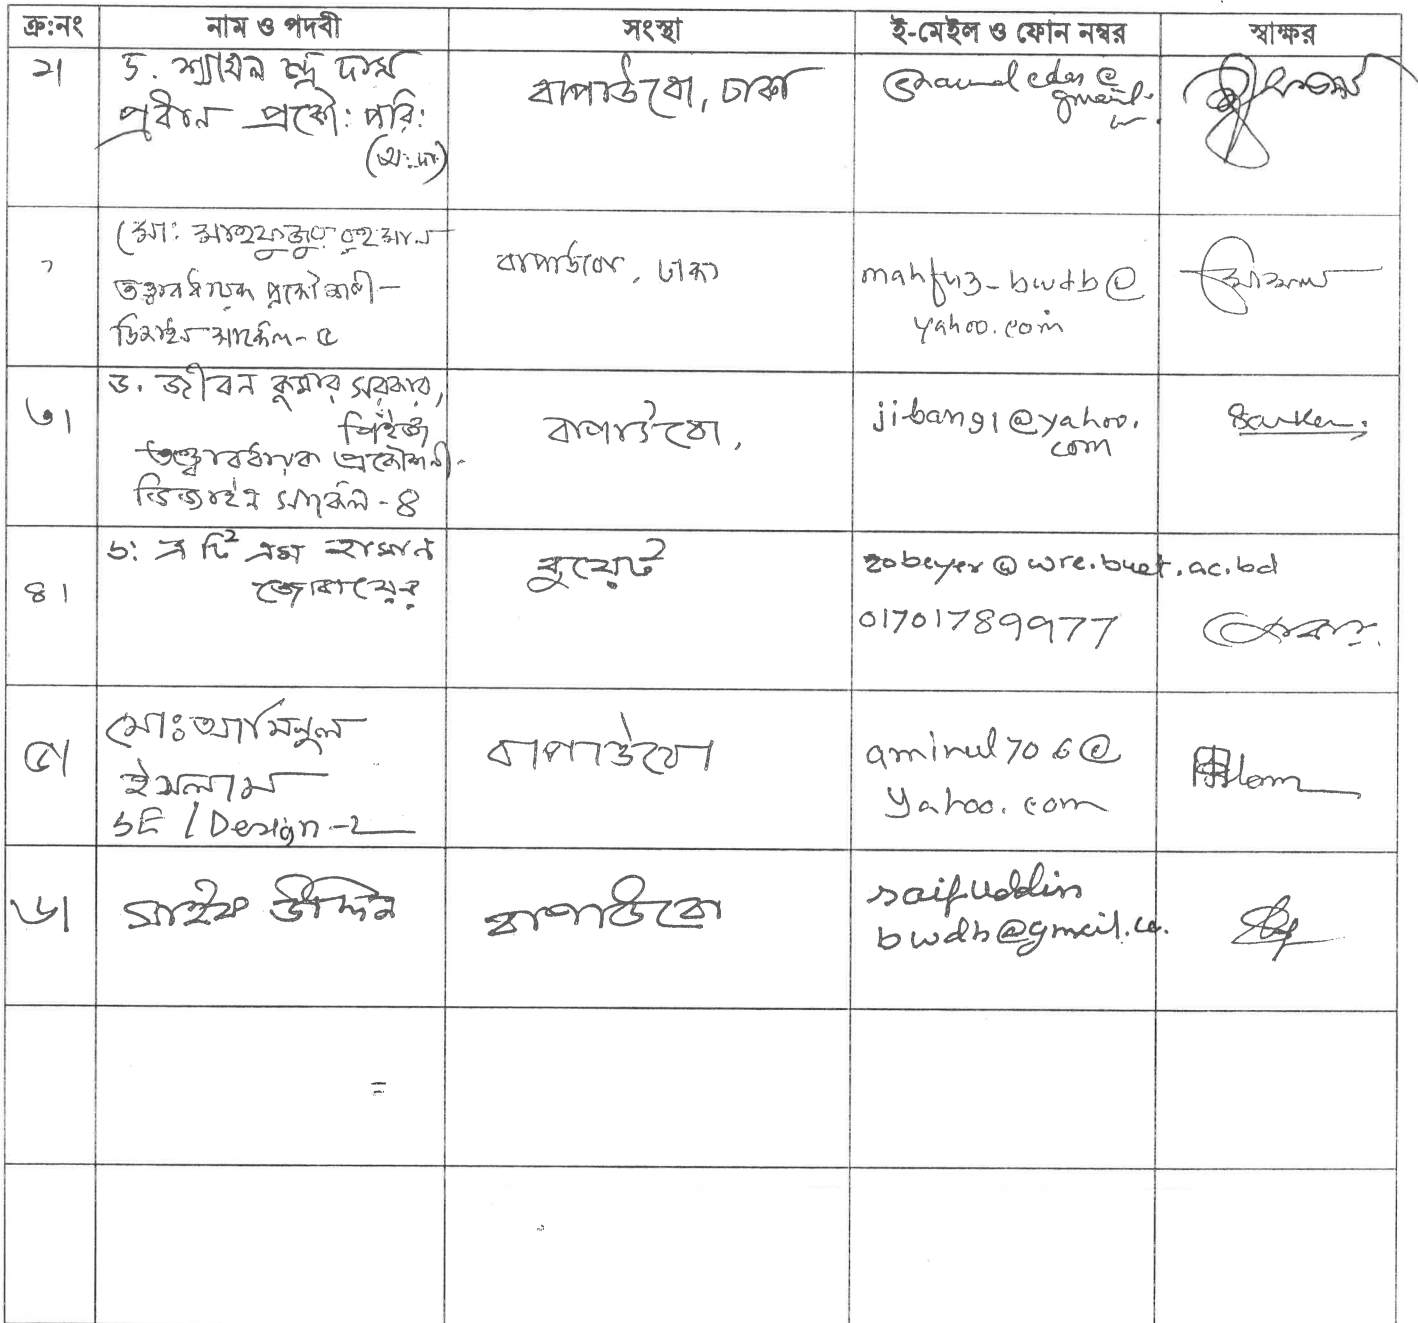 ক্র:নং নাম ও পদবী সংস্থা ই-মেইল ও ফোন নম্বর স্বাক্ষর
ড. শ্যামল চন্দ্র দাস
প্রধান প্রকৌ: পরি:
(অ:দা)
বাপাউবো, ঢাকা
gmail.
মো: মাহফুজুর রহমান
তত্ত্বাবধায়ক প্রকৌশলী-
ডিজাইন সার্কেল-৫
বাপাউবো, ঢাকা
mahfuz-bwdb@
yahoo.com
৩। ড. জীবন কুমার সরকার,
পিইঞ্জ
তত্ত্বাবধায়ক প্রকৌশলী-
ডিজাইন সার্কেল-৪
বাপাউবো,
jibang1@yahoo.
com
Sarker
৪। ড: এ টি এম হাসান
জোবায়ের
বুয়েট
zobeyer@wre.buet.ac.bd
01701789977
৫। মোঃ আমিনুল
ইসলাম
SE / Design-2
বাপাউবো
aminul706@
yahoo.com
৬। সাইফ উদ্দিন
বাপাউবো
saifuddin
bwdb@gmail.co.